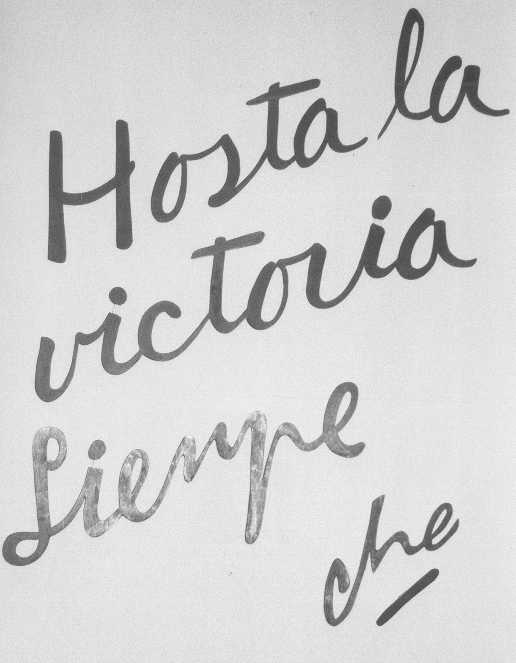 Hosta la
victoria
Siempre
che